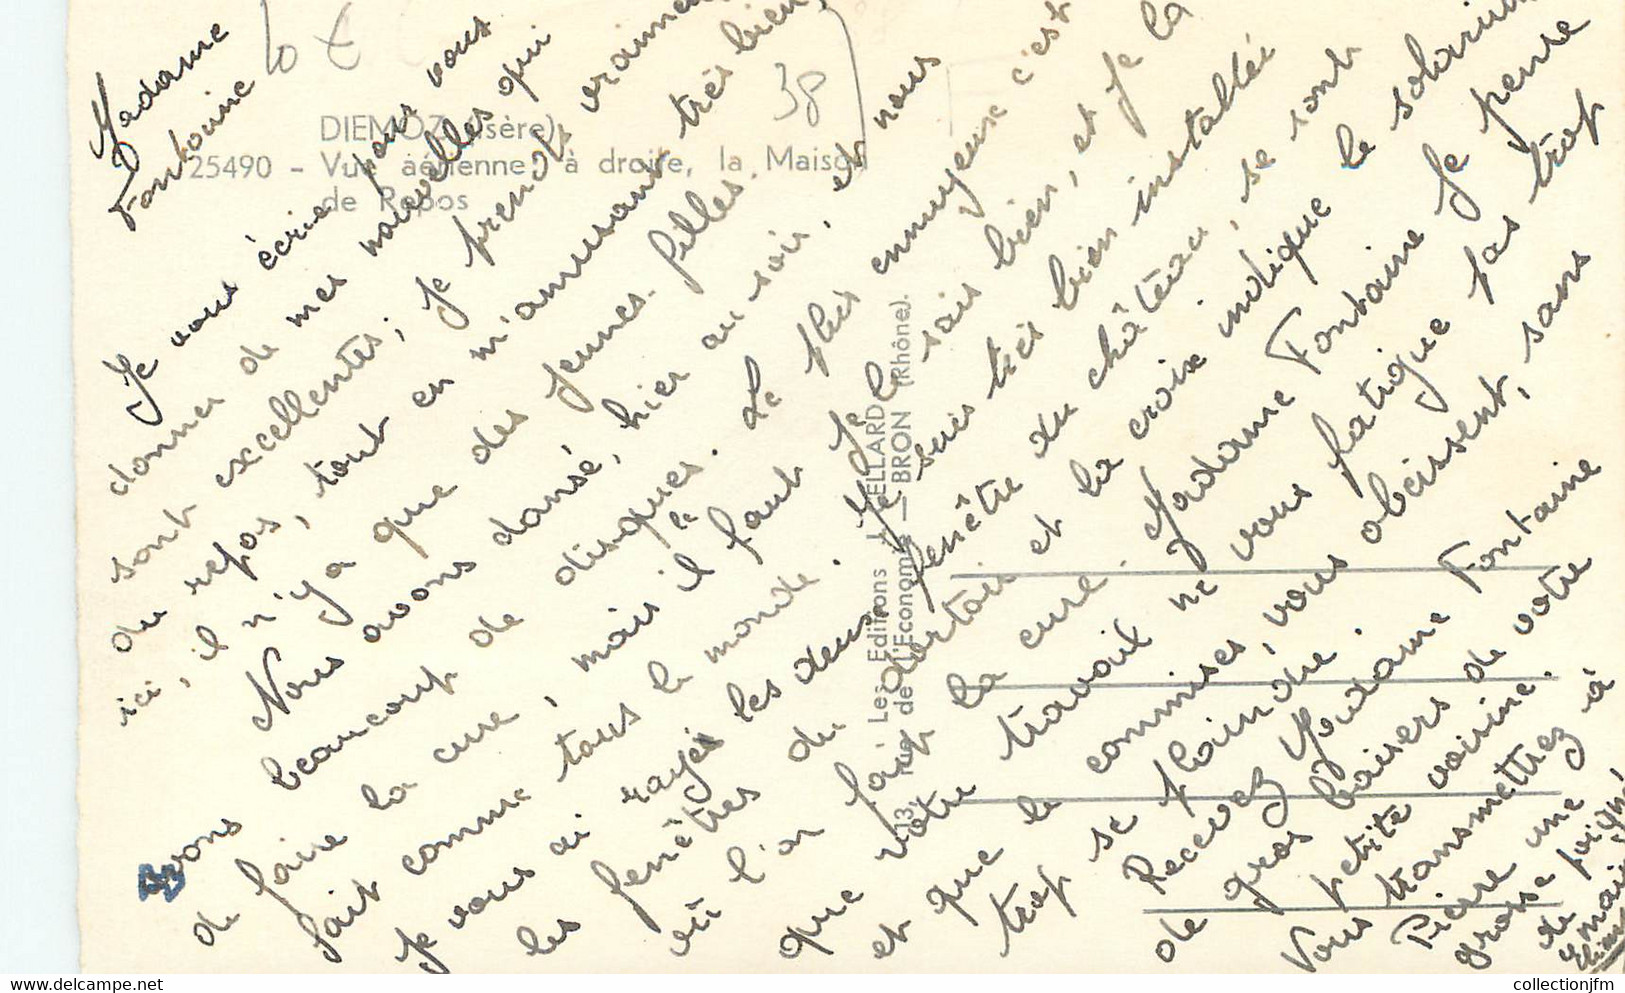 Madame
Fontaine
10 €
38
DIEMOZ (Isère)
25490 - Vue aérienne, à droite, la Maison
de Repos
Les Editions J. CELLARD
de l'Economie — BRON (Rhône).
13, Rue
Je vous écrie pour vous
donner de mes nouvelles qui
sont excellentes, je prend vraiment
du repos, tout en m'amusant très bien
ici, il n'y a que des jeunes filles.
Nous avons dansé, hier au soir, et nous
avons beaucoup de disques. Le plus ennuyeux c'est
de faire la cure, mais il faut le
fait comme tous le monde. Je le sais bien, et je la
Je vous ai rayés les deux Je suis très bien installée
les fenêtres du dortoir fenêtre du château, se sont
où l'on fait la cure et la croix indique le solarium
que votre travail Madame Fontaine Je pense
et que le commises, ne vous fatigue pas trop
trop se plaindre. vous obéissent, sans
Recevez Madame Fontaine
de gros baisers de votre
petite voisine.
Vous transmettrez à
Pierre une
grosse poignée
de main